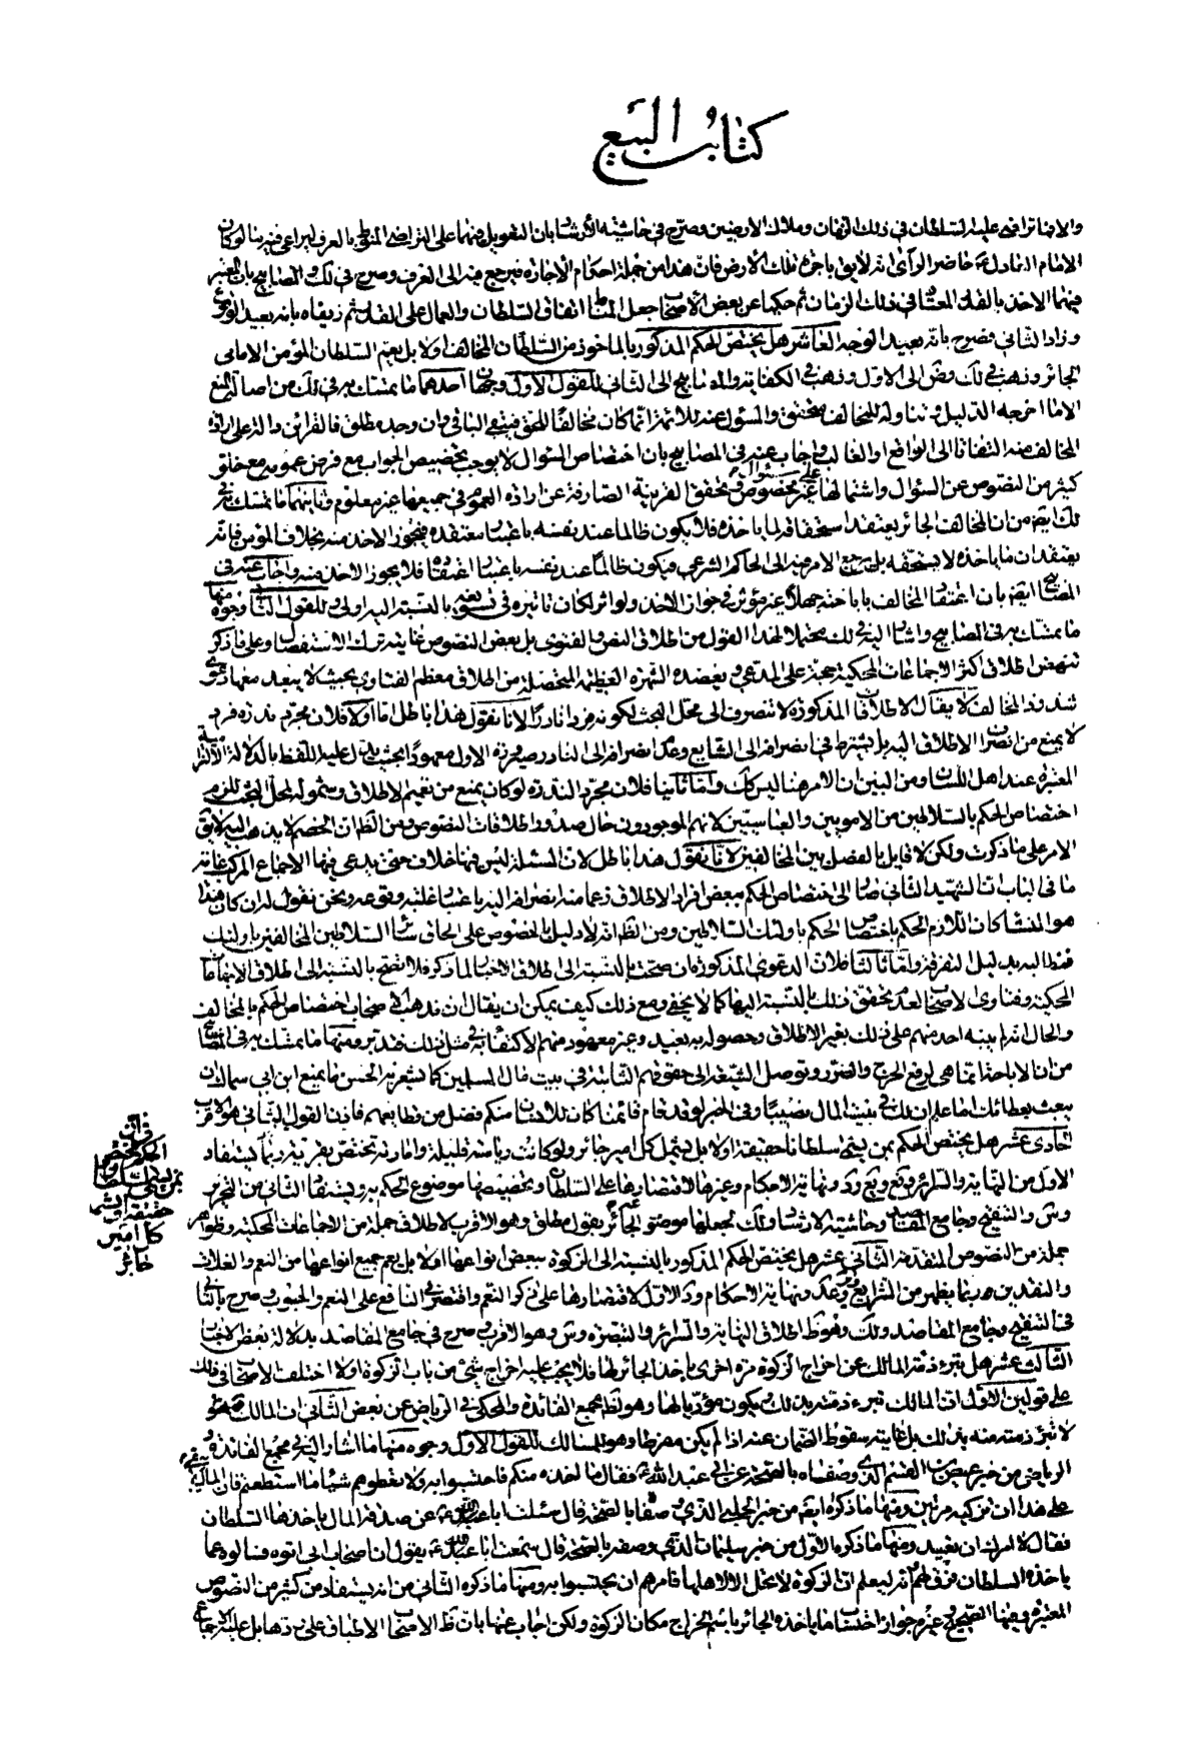 كتاب البيع
والا فما تراضى عليه السلطان في ذلك الزمان وملاك الارضين وصرح في حاشية الارشاد بان التعويل فيهما على التراضي بالعرف
الامام العادل حاضرا لرأى انه لايق باجرة تلك الارض فان هذا من جملة احكام الاجارة فيرجع فيه الى العرف وصرح في لك و المصابيح بان المعتبر
فيهما الاخذ بالقدر المعتاد في ذلك الزمان ثم حكيا عن بعض الاصحاب جعل المناط اتفاق السلطان والعمال على القدر ثم زيفاه بانه بعيد الوقوع
وزاد الثاني فصرح بانه بعيد الوجه العاشر هل يختص الحكم المذكور بالماخوذ من السلطان المخالف اولا بل يعم السلطان المؤمن الامامي
الجائر وذهب في لك الى الاول وذهب في الكفاية والمصابيح الى الثاني للقول الاول وجهان احدهما ما تمسك به في لك من اصالة المنع
الا ما اخرجه الدليل وتناوله للمخالف متحقق والمسؤل عنه للائمة انما كان مخالفا للحق فيبقى الباقي وان وجد مطلق فالقرائن دالة على ارادة
المخالف منه التفاتا الى الواقع او الغالب واجاب عنه في المصابيح بان اختصاص السؤال لا يوجب تخصيص الجواب مع فرض عمومه مع خلو
كثير من النصوص عن السؤال واشتمالها على سؤال غير مخصوص وتحقق القرينة الصارفة عن ارادة العموم في جميعها غير معلوم وثانيهما ما تمسك به في
لك ايضا من ان المخالف الجائر يعتقد استحقاقه لما ياخذه فلا يكون ظالما عند نفسه باعتبار معتقده فيجوز الاخذ منه بخلاف المؤمن فانه
يعتقد ان ما ياخذه لا يستحقه بل مرجع الامر فيه الى الحاكم الشرعي فيكون ظالما عند نفسه باعتبار اعتقاده فلا يجوز الاخذ منه واجاب عنه في
المصابيح ايضا بان اعتقاد المخالف باباحته جهلا غير مؤثر في جواز الاخذ ولو اثر لكان تاثيره في تسويغه بالنسبة اليه اولى وللقول الثاني وجوه منها
ما تمسك به في المصابيح واشار اليه في لك محتملا لهذا القول من اطلاق النص والفتوى بل بعض النصوص غايته ترك الاستفصال وعلى ما ذكر
تنهض اطلاق اكثر الاجماعات المحكية حجة على المدعى ويعضده الشهرة العظيمة المتحصلة من اطلاق معظم الفتاوى بحيث لا يبعد معها دعوى
شذوذ المخالف لا يقال الاطلاقات المذكورة لا تنصرف الى محل البحث لكونه فردا نادرا لانا نقول هذا باطل اما اولا فلان مجرد ندرة فرد
لا يمنع من انصراف الاطلاق اليه بل يشترط في انصرافه الى الشايع وعدم انصرافه الى النادر صيرورة الاول معهودا بحيث يدل عليه اللفظ بالدلالة الالتزامية
المعتبرة عند اهل اللسان ومن البين ان الامر هنا ليس كك واما ثانيا فلان مجرد الندرة لو كان يمنع من تعميم الاطلاق وشموله لمحل البحث للزم
اختصاص الحكم بالسلاطين من الامويين والعباسيين لانهم الموجودون حال صدور اطلاقات النصوص ومن الظاهر ان الخصم لا يذهب اليه لا يق
الامر على ما ذكرت ولكن لا قايل بالفصل بين المخالفين لانا نقول هذا باطل لان المسئلة ليس فيها خلاف حتى يدعى فيها الاجماع المركب غايته
ما في الباب ان الشهيد الثاني صار الى اختصاص الحكم ببعض افراد الاطلاق زعما منه انصرافه اليه باعتبار غلبة وقوعه ونحن نقول له ان كان هذا
هو المنشا كان اللازم الحكم باختصاص الحكم باولئك السلاطين ومن الظاهر انه لا دليل بالخصوص على الحاق سائر السلاطين المخالفين باولئك
واما ثالثا فلان الدعوى المذكورة ان صحت بالنسبة الى اطلاق الاخبار لما ذكر فلا تصح بالنسبة الى اطلاق الاجماعات
المحكية وفتاوى الاصحاب لعدم تحقق ذلك بالنسبة اليها كما لا يخفى ومع ذلك كيف يمكن ان يقال ان مذهب الاصحاب اختصاص الحكم بالمخالف
والحال انه لم ينبه احد منهم على ذلك بغير الاطلاق وحصوله به بعيد وغير معهود منهم الاكتفاء به في مثل ذلك فتدبر ومنها ما تمسك به في المصابيح
من ان الاباحة انما هي لرفع الحرج والضرر وتوصل الشيعة الى حقوقهم الثابتة في بيت مال المسلمين كما يشعر به الحسن ما يمنع ابن ابي سماك ان
يبعث بعطائك اما علم ان لك في بيت المال نصيبا وفي الخبر فاذن القول الثاني هو الاقرب
الحادي عشر هل يختص الحكم بمن يسمى سلطانا حقيقة اولا بل يشمل كل امير جائر ولو كانت رياسته قليلة وامارته تختص بقرية ربما يستفاد
الاول من النهاية والسرائر و ونهاية الاحكام وغيرها لاقتصارها على السلطان وتخصيصها موضوع الحكم به ويستفاد الثاني من التحرير
و والتنقيح وجامع المقاصد وحاشية الارشاد ولك لجعلها موضوع الحكم الجائر بقول مطلق وهو الاقرب لاطلاق جملة من الاجماعات المحكية وظواهر
جملة من النصوص المتقدمة الثاني عشر هل يختص الحكم المذكور بالنسبة الى الزكوة ببعض انواعها اولا بل يعم جميع انواعها من النعم والغلات
والنقدين ربما يظهر من الشرايع و ونهاية الاحكام الاول لاقتصارها على ذكر النعم واقتصر في النافع على النعم والحبوب وصرح بالثاني
في التنقيح وجامع المقاصد ولك وهو ظ اطلاق النهاية والسرائر والتبصرة و وهو الاقرب وصرح في جامع المقاصد بدلالة بعض الاخبار
الثالث عشر هل تبرء ذمة المالك عن اخراج الزكوة مرة اخرى باخذ الجائر لها فلا يجب عليه اخراج شيء من باب الزكوة اولا اختلف الاصحاب في ذلك
على قولين الاول ان المالك تبرء ذمته بذلك ويكون مؤديا لها وهو لظاهر مجمع الفائدة والمحكي في الرياض عن بعض الثاني ان المالك
لا تبرء ذمته منه بذلك بل غايته سقوط الضمان عنه اذا لم يكن مفرطا وهو للمسالك للقول الاول وجوه منها ما اشار اليه في مجمع الفائدة و
الرياض من خبر عيص بن القسم الذي وصفاه بالصحة عن ابي عبد الله فقال ما اخذه منكم فاحتسبوا به ولا تعطوهم شيئا ما استطعتم فان المال لا يبقى
على هذا ان تزكيه مرتين ومنها ما ذكراه ايضا من خبر الحلبي الذي وصفاه بالصحة قال سئلت ابا عبد الله عن صدقة المال ياخذها السلطان
فقال لا امرك ان تعيد ومنها ما ذكره الاول من خبر سليمان الذي وصفه بالصحة قال سمعت ابا عبد الله يقول ان اصحاب ابي اتوه فسالوه عما
ياخذه السلطان فرق لهم انه ليعلم ان الزكوة لا تحل الا لاهلها فامرهم ان يحتسبوا به ومنها ما ذكره الثاني من انه يستفاد من كثير من النصوص
المعتبرة وفيها الصحيح وغيره جواز احتساب ما ياخذه الجائر باسم الخراج مكان الزكوة ولكن اجاب عنها بان ظ الاصحاب الاطباق على ردها بل عليه الاجماع
في ان
الحكم مختص
بمن يسمى سلطانا
حقيقة او يشمل
كل امير
جائر